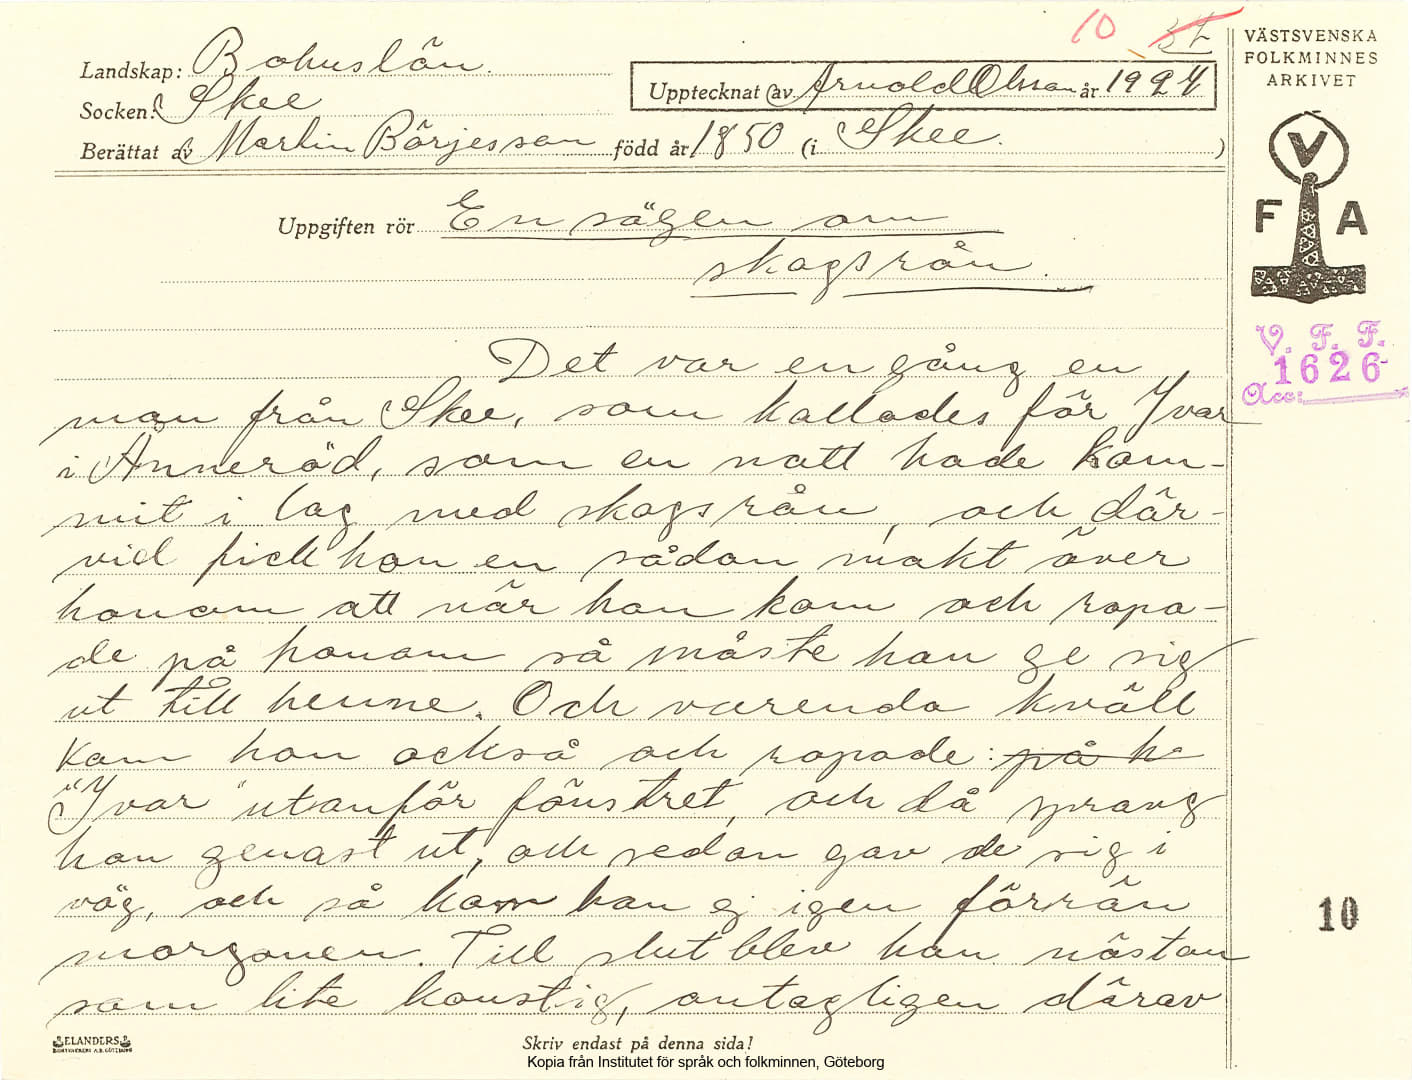 10 37
Landskap: Bohuslän.
Socken: Skee
Berättat av Martin Börjesson född år 1850 (i Skee. )
Upptecknat av Arnold Olsson år 1924
VÄSTSVENSKA
FOLKMINNES
ARKIVET
V
F A
V. F. F.
1626
Acc:
Uppgiften rör En sägen om
skogsrån.
Det var en gång en
man från Skee, som kallades för Yvar
i Änneröd, som en natt hade kom-
mit i lag med skogsrån, och där-
vid fick hon en sådan makt över
honom att när hon kom och ropa-
de på honom så måste han ge sig
ut till henne. Och varenda kväll
kom hon också och ropade: på h
"Yvar" utanför fönstret, och då sprang
han genast ut, och sedan gav de sig i
väg, och så kom han ej igen förrän
morgonen. Till slut blev han nästan
som lite konstig, antagligen därav
10
ELANDERS
Skriv endast på denna sida!
Kopia från Institutet för språk och folkminnen, Göteborg